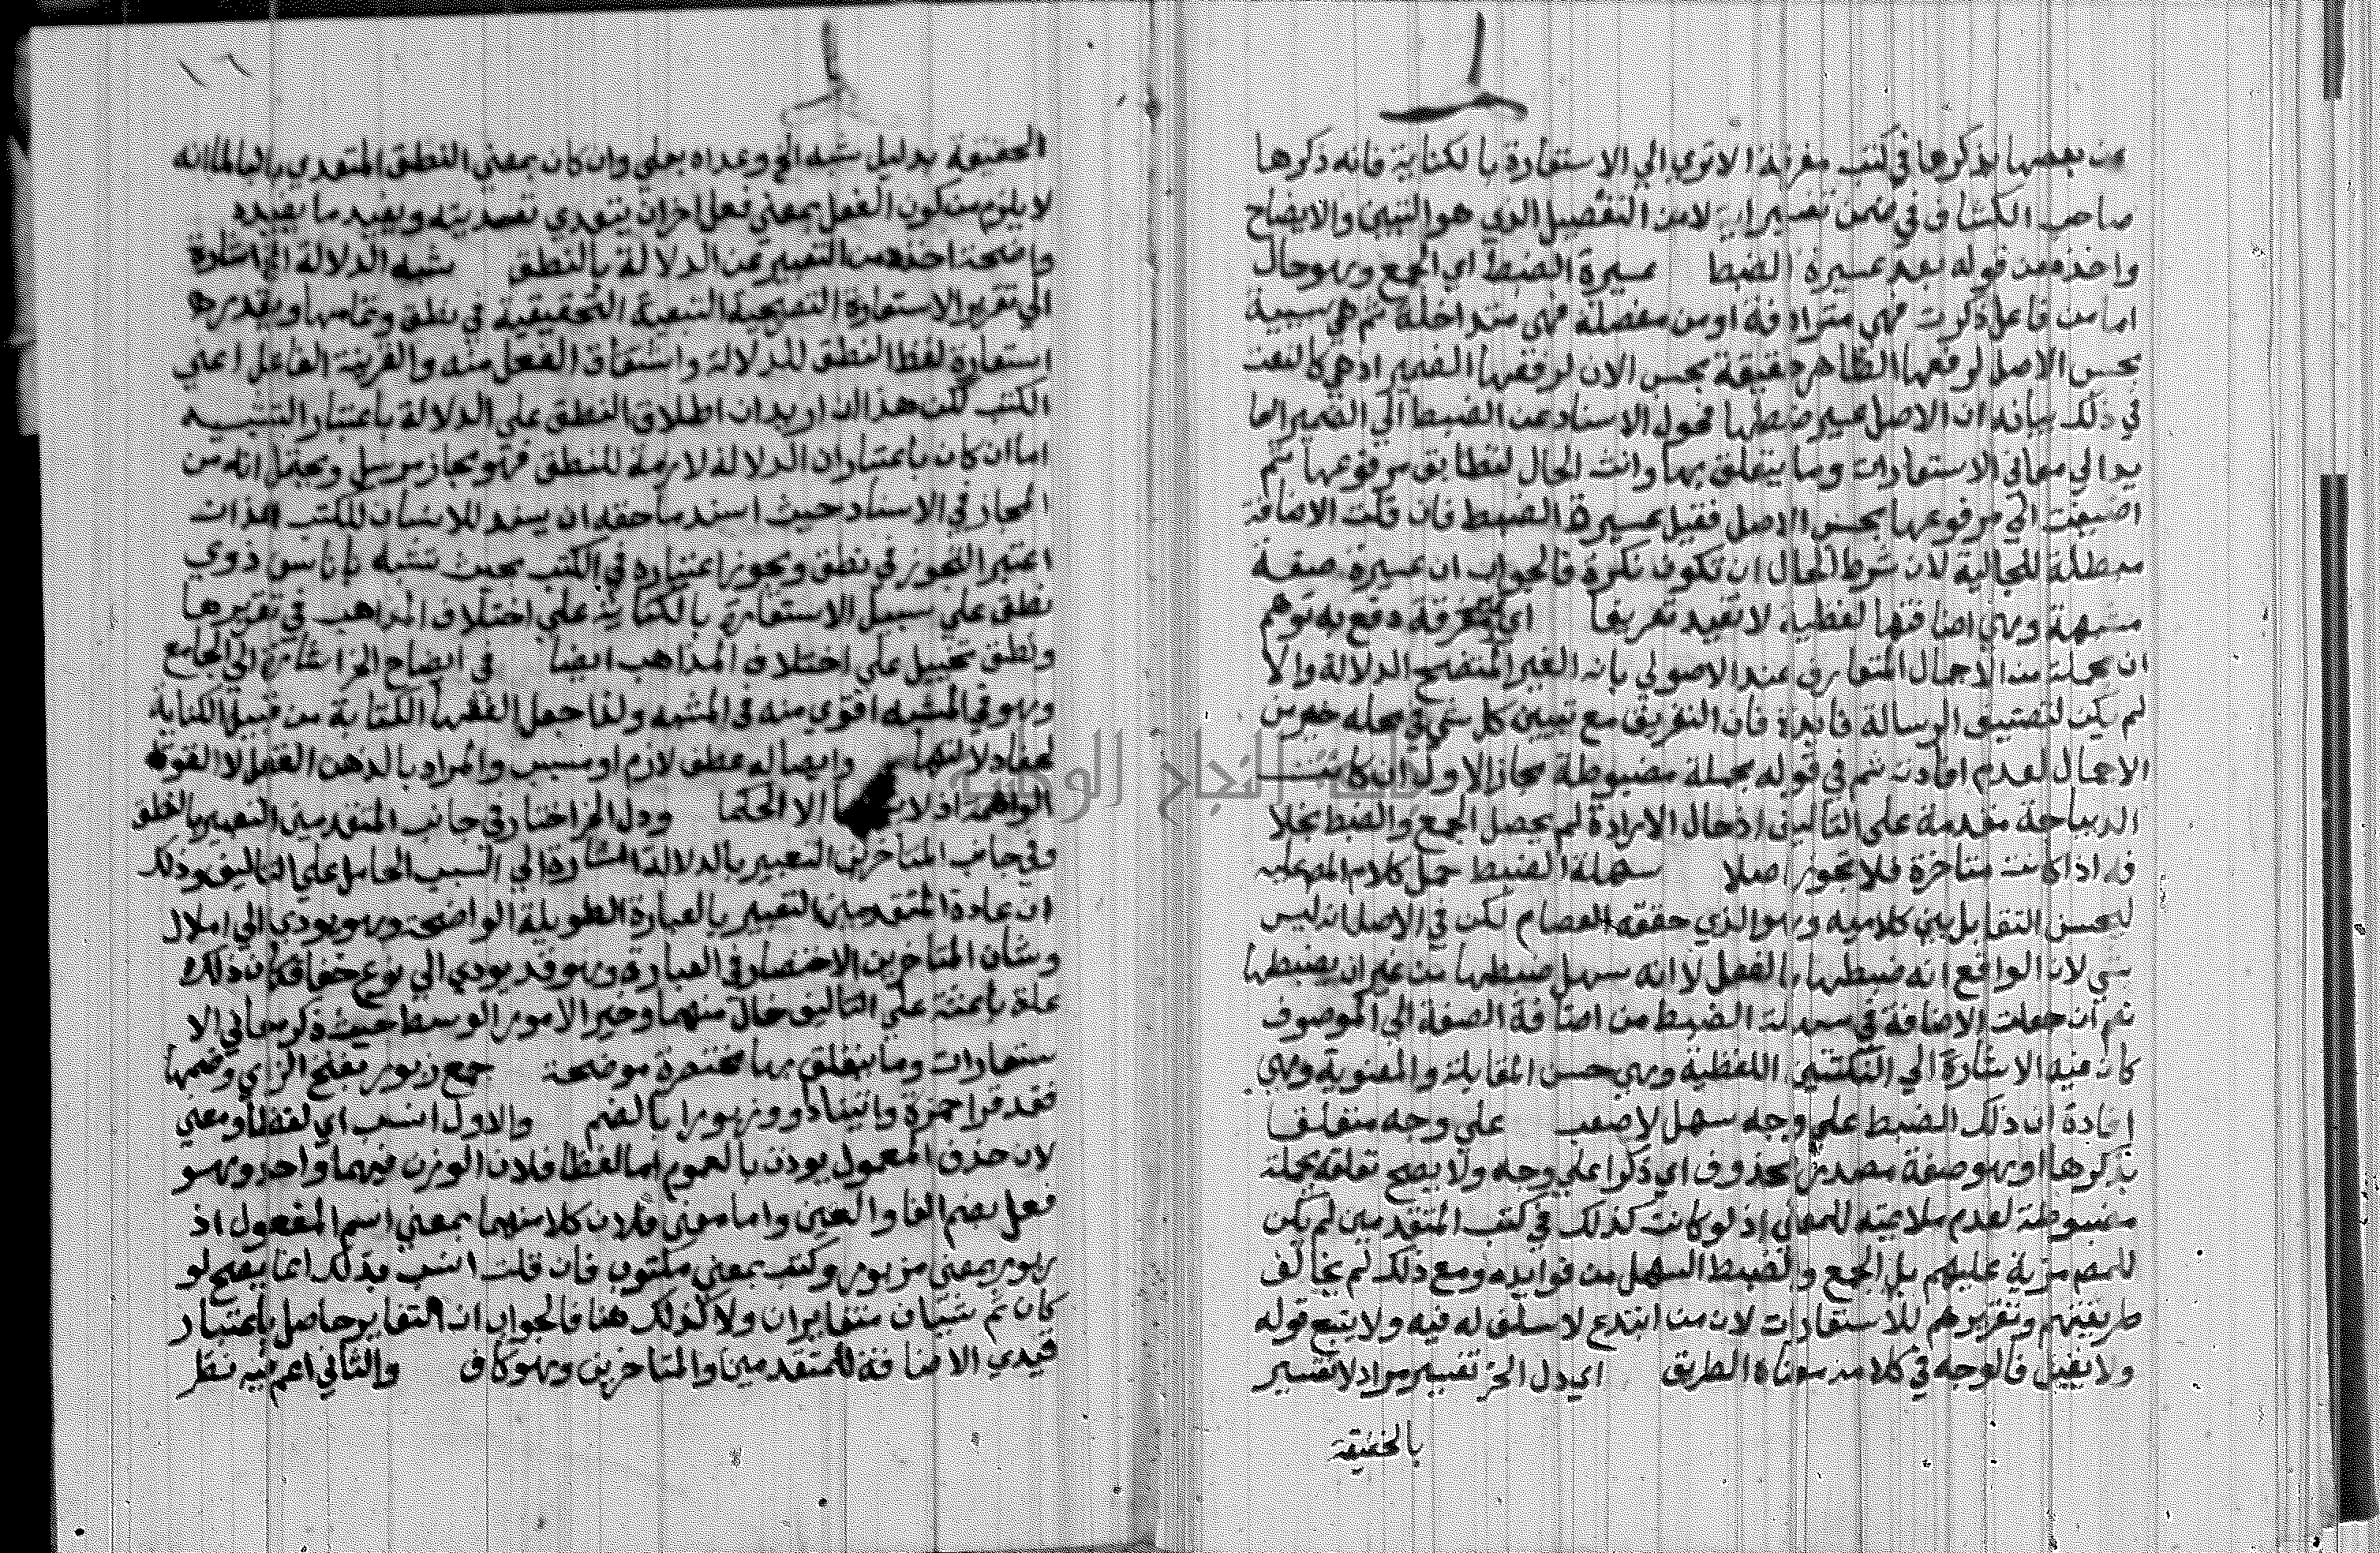 من بعضها يذكرها في كتب مفرقة الا ترى الى الاستعارة بالكناية فانه ذكرها
صاحب الكشاف في ضمن تفسير ايه لا من التفصيل الذي هو التبيين والايضاح
واخذه من قوله بعد عسيرة الضبط عسيرة الضبط اي الجمع وهو حال
اما من فاعل ذكرت فهي مترادفة او من مفصلة فهي متداخلة ثم هي سببية
بحسب الاصل لرفعها الظاهر حقيقة بحسب الان لرفعها الضمير اذ هي كالنعت
في ذلك بيانه ان الاصل عسير ضبطها فحول الاسناد عن الضبط الي الضمير العا
يد الي معاني الاستعارات وما يتعلق بها وانث الحال لتطابق مرفوعها ثم
اضيفت الي مرفوعها بحسب الاصل فقيل عسيرة الضبط فان قلت الاضافة
مبطلة للحالية لان شرط الحال ان تكون نكرة فالجواب ان عسيرة صفة
مشبهة وهي اضافتها لفظية لا تفيد تعريفا اي متفرقة دفع به توهم
ان مجملة من الاجمال المتعارف عند الاصولي بانه الغير المتضح الدلالة والا
لم يكن لتصنيف الرسالة فايدة فان التفريق مع تبيين كل شي في محله خير من
الاجمال لعدم افادته ثم في قوله مجملة مضبوطة مجاز الاول ان كانت
الديباجة متقدمة على التاليف اذ حال الارادة لم يحصل الجمع والضبط بخلا
ف اذا كانت متاخرة فلا تجوز اصلا سهلة الضبط حمل كلام المص عليه
ليحسن التقابل بين كلاميه وهو الذي حققه العصام لكن في الاصل انه ليس
بشي لان الواقع انه ضبطها بالفعل لا انه سهل ضبطها من غير ان يضبطها
نعم ان جعلت الاضافة في سهلة الضبط من اضافة الصفة الي الموصوف
كان فيه الاشارة الي النكتتين اللفظية وهي حسن المقابلة والمعنوية وهي
افادة ان ذلك الضبط علي وجه سهل لا صعب علي وجه متعلق
بذكرها او هو صفة مصدر محذوف اي ذكرا علي وجه ولا يصح تعلقه بجملة
مضبوطة لعدم ملايمته للمعني اذ لو كانت كذلك في كتب المتقدمين لم يكن
للمص مزية عليهم بل الجمع والضبط السهل من فوايده ومع ذلك لم يخالف
طريقتهم وتقريرهم للاستعارات لان من ابتدع لا سلف له فيه ولا يتبع قوله
ولا يقبل فالوجه في كلامه معناه الطريق اي دل الخ تفسير مراد لا تفسير
بالحقيقة
الحقيقة بدليل شبه الخ وعداه بعلي وان كان بمعني النطق المتعدي بالبا لما انه
لا يلزم من كون الفعل بمعني فعل اخر ان يتعدي تعديته ويفيد ما يفيده
واضحة اخذه من التعبير عن الدلالة بالنطق شبه الدلالة الخ اشارة
الي تقرير الاستعارة التصريحية التبعية التحقيقية في نطق وتمامها ويقدرها
استعارة لفظ النطق للدلالة واشتقاق الفعل منه والقرينة الفاعل اعني
الكتب لكن هذا ان اريد ان اطلاق النطق علي الدلالة باعتبار التشبيه
اما ان كان باعتبار ان الدلالة لازمة للنطق فهو مجاز مرسل ويحتمل انه من
المجاز في الاسناد حيث اسند ما حقه ان يسند للانسان للكتب الذات
اعتبر التجوز في نطق ويجوز اعتباره في الكتب بحيث تشبه باناس ذوي
نطق علي سبيل الاستعارة بالكناية علي اختلاف المذاهب في تقريرها
ونطق تخييل علي اختلاف المذاهب ايضا في ايضاح الخ اشارة الي الجامع
وهو في المشبه اقوي منه في المشبه ولذا جعل الفقها الكتابة من قبيل الكناية
لخفا دلالتها وايصاله عطف لازم او مسبب والمراد بالذهن العقل لا القوة
الواهمة اذ لا الا الحكما ودل الخ اختار في جانب المتقدمين التعبير بالنطق
وفي جانب المتاخرين التعبير بالدلالة اشارة الي السبب الحامل علي التاليف وذلك
ان عادة المتقدمين التعبير بالعبارة الطويلة الواضحة وهو يودي الي املال
وشان المتاخرين الاختصار في العبارة وهو قد يودي الي نوع خفا فكان ذلك
علة باعثة علي التاليف خال منهما وخير الامور الوسط حيث ذكر معاني الا
ستعارات وما يتعلق بها مختصرة موضحة جمع زبور بفتح الزاي وضمها
فقد قرا حمزة واتينا داوود زبورا بالضم والاول انسب اي لفظا ومعني
لان حذف المعمول يوذن بالعموم اما لفظا فلان الوزن فيهما واحد وهو
فعل بضم الفا والعين واما معني فلان كلا منهما بمعني اسم المفعول اذ
زبور بمعني مزبور وكتب بمعني مكتوب فان قلت انسب بذلك انما يصح لو
كان ثم شيئان متغايران ولا كذلك هنا فالجواب ان التغاير حاصل باعتبار
قيدي الاضافة للمتقدمين والمتاخرين وهو كاف والثاني اعم فيه نظر